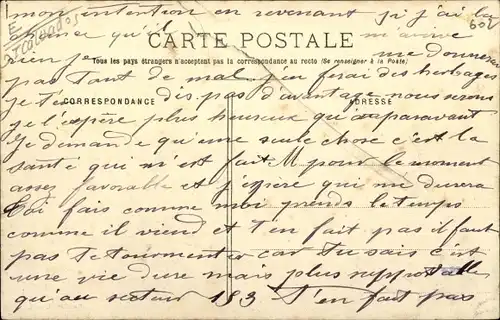 mon intention en revenant si j'ai la
penser qu'il m'arrive
CARTE POSTALE
bien je me donnerai
Tous les pays étrangers n'acceptent pas la correspondance au recto (Se renseigner à la Poste)
pas tant de mal. J'en ferai des herbages
CORRESPONDANCE
ADRESSE
je t'en dis pas d'avantage nous serons
je l'espère plus heureux qu'auparavant
Je demande qu'une seule chose c'est la
santé qui m'est fait pour le moment
assez favorable et j'espère qui me durera
Toi fais comme moi prends le temps
comme il viend et t'en fait pas il faut
pas te tourmenter car tu sais c'est
une vie dure mais plus supportable
qu'au secteur 183 T'en fait pas